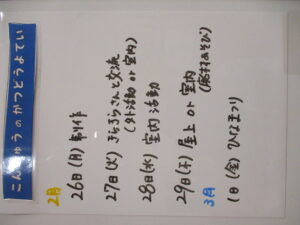 こんしゅうのかつどうよてい
2月
26日(月) 制作
27日(火) きらきらさんと交流
(外活動 or 室内)
28日(水) 室内活動
29日(木) 屋上 or 室内
(廃材あそび)
3月
1日(金) ひなまつり